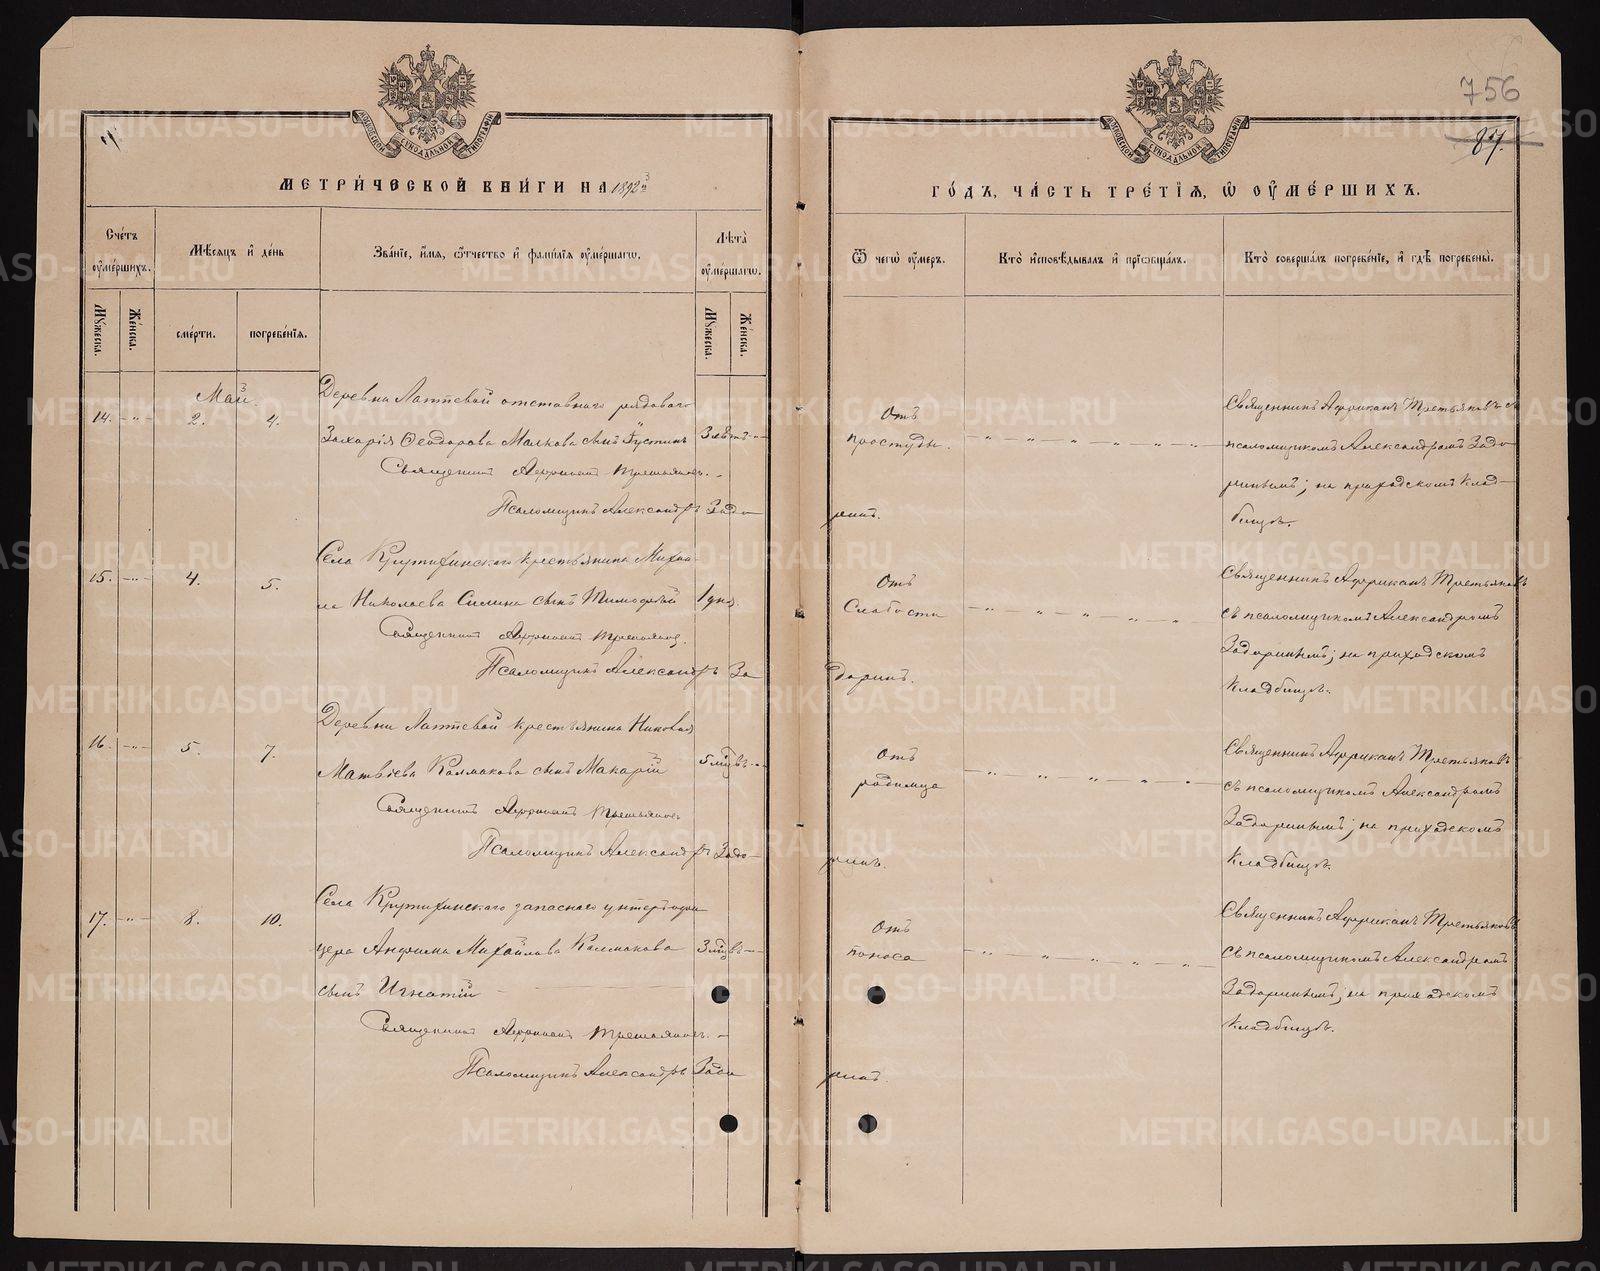 756
87.
МЕТРИ́ЧЕСКОЙ КНИ́ГИ НА 1892й
ГО́ДЪ, ЧА́СТЬ ТРЕ́ТІЯ, Ѡ ОУМЕ́РШИХЪ.
Сче́тъ оумѐршихъ.
Мѣ́сяцъ и де́нь
Зва́ніе, и́мя, ѻ҆́тчество и фами́лія оуме́ршагѡ.
Лѣта̀ оуме́ршагѡ.
Му́жеска.
Же́нска.
сме́рти.
погребе́нія.
Му́жеска.
Же́нска.
Ѿ чегѡ̀ оу́меръ.
Кто̀ исповѣ́дывалъ и пріѡбща́лъ.
Кто̀ соверша́лъ погребе́ніе, и гдѣ̀ погребены̀.
Май.
14.
2.
4.
Деревни Лаптевой отставного рядового
Захарія Ѳеодорова Малкова сынъ Іустинъ
3 лѣтъ
Священникъ Африканъ Третьяковъ.
Псаломщикъ Александръ Задоринъ.
Отъ
простуды.
Священникъ Африканъ Третьяковъ съ
псаломщикомъ Александромъ Задо
ринымъ; на приходскомъ клад-
бищѣ.
15.
4.
5.
Села Крутихинскаго крестьянина Михаи
ла Николаева Силина сынъ Тимофей
1 дня.
Священникъ Африканъ Третьяковъ.
Псаломщикъ Александръ Задоринъ.
Отъ
слабости
Священникъ Африканъ Третьяковъ
съ псаломщикомъ Александромъ
Задоринымъ; на приходскомъ
кладбищѣ.
16.
5.
7.
Деревни Лаптевой крестьянина Николая
Матвѣева Колмакова сынъ Макарій
5 мцвъ
Священникъ Африканъ Третьяковъ
Псаломщикъ Александръ Задоринъ.
Отъ
родимца
Священникъ Африканъ Третьяковъ
съ псаломщикомъ Александромъ
Задоринымъ; на приходскомъ
кладбищѣ.
17.
8.
10.
Села Крутихинскаго запаснаго унтеръ-офи
цера Анфима Михайлова Колмакова
сынъ Игнатій
3 мцвъ
Священникъ Африканъ Третьяковъ.
Псаломщикъ Александръ Задоринъ.
Отъ
поноса
Священникъ Африканъ Третьяковъ
съ псаломщикомъ Александромъ
Задоринымъ; на приходскомъ
кладбищѣ.
METRIKI.GASO-URAL.RU